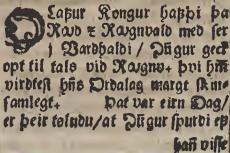 OLafur Kongur hafþi þa
Raud ⁊ Rognvald med ser
i Vardhaldi / Jngur geck
opt til tals vid Rognv. þvi hm̄
virdtest hn̄s Ordalag margt skin-
samlegt. Þat var eirn Dag/
er þeir toludu/at Jngur spurdi ef
han̄ visse